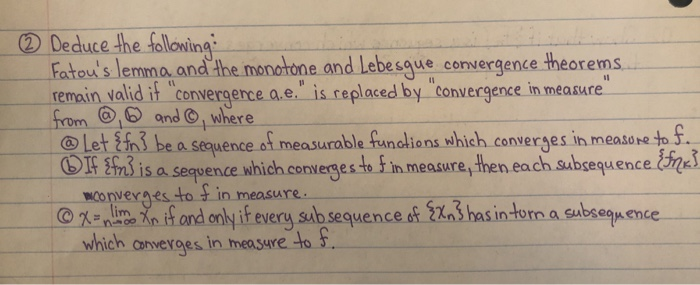 ② Deduce the following:
Fatou's lemma and the monotone and Lebesgue convergence theorems
remain valid if "convergence a.e." is replaced by "convergence in measure"
from ⓐ, ⓑ and ⓒ, where
ⓐ Let {fn} be a sequence of measurable functions which converges in measure to f.
ⓑ If {fn} is a sequence which converges to f in measure, then each subsequence {fnk}
converges to f in measure.
ⓒ x = lim n→∞ Xn if and only if every subsequence of {Xn} has in torn a subsequence
which converges in measure to f.